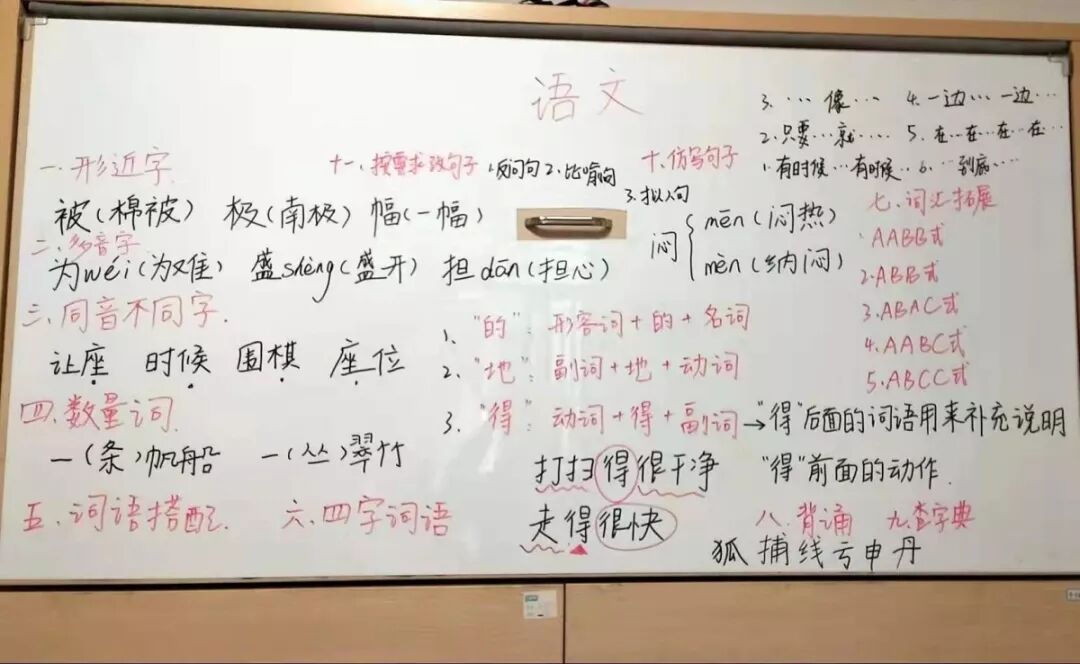 语文
3. … 像… 4. 一边… 一边…
2. 只要…就…. 5. 在…在…在…在…
1. 有时候…有时候… 6. …到底….
一.形近字.
十一、按要求改句子 1.反问句 2.比喻句
3.拟人句
十.仿写句子
被(棉被) 极(南极) 幅(一幅)
二.多音字
为wéi(为难) 盛shèng(盛开) 担dān(担心)
闷 mēn(闷热)
mèn(纳闷)
七.词汇拓展
1.AABB式
2.ABB式
3.ABAC式
4.AABC式
5.ABCC式
三.同音不同字.
让座 时候 围棋 座位
四.数量词.
一(条)帆船 一(丛)翠竹
五.词语搭配. 六.四字词语
1. "的": 形容词+的+名词
2. "地": 副词+地+动词
3. "得": 动词+得+副词→"得"后面的词语用来补充说明
"得"前面的动作.
打扫得很干净
走得很快
八.背诵 九.查字典
狐 捕 线 亏 申 丹